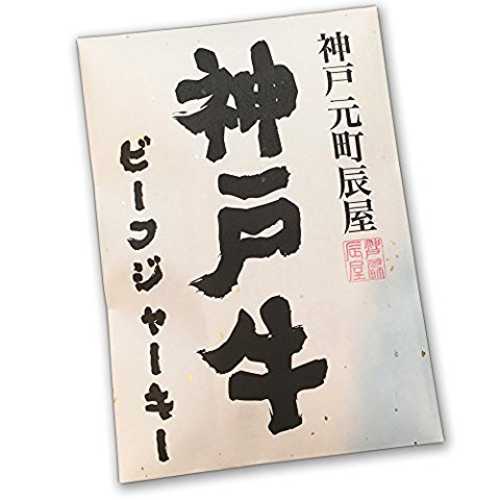 神戸 元町辰屋
神戸牛
ビーフジャーキー